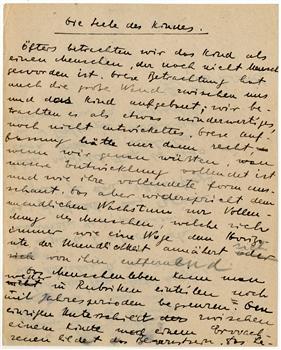 Die Seele des Kindes.
Öfters betrachten wir das Kind als
einen Menschen, der noch nicht Mensch
geworden ist. Diese Betrachtung hat
auch die große Wand zwischen uns
und das Kind aufgebaut; wir be-
trachten es als etwas minderwertiges,
noch nicht entwickeltes. Diese Auf-
fassung hätte nur dann recht,
wenn wir genau wüßten, wann
unsere Entwicklung vollendet ist
und wie ihre vollendete Form aus-
schaut. Das aber widerspricht dem
unendlichen Wachstum zur Vollen-
dung des Menschen, welche sich
immer wie eine Woge dem Horizo
nte der Unendlichkeit annähert
sich von ihm entfernt
Das Menschenleben kann man
nicht in Rubriken einteilen noch
mit Jahresperioden begrenzen. Den
einzigen Unterschied zwischen
einem Kinde und einem Erwach-
senen bildet das Bewusstsein. Das